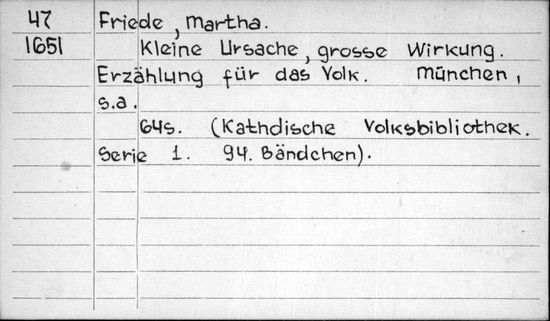 47 Friede, Martha.
1651 Kleine Ursache, grosse Wirkung.
Erzählung für das Volk. München,
s.a.
64s. (Kathdische Volksbibliothek.
Serie 1. 94. Bändchen).